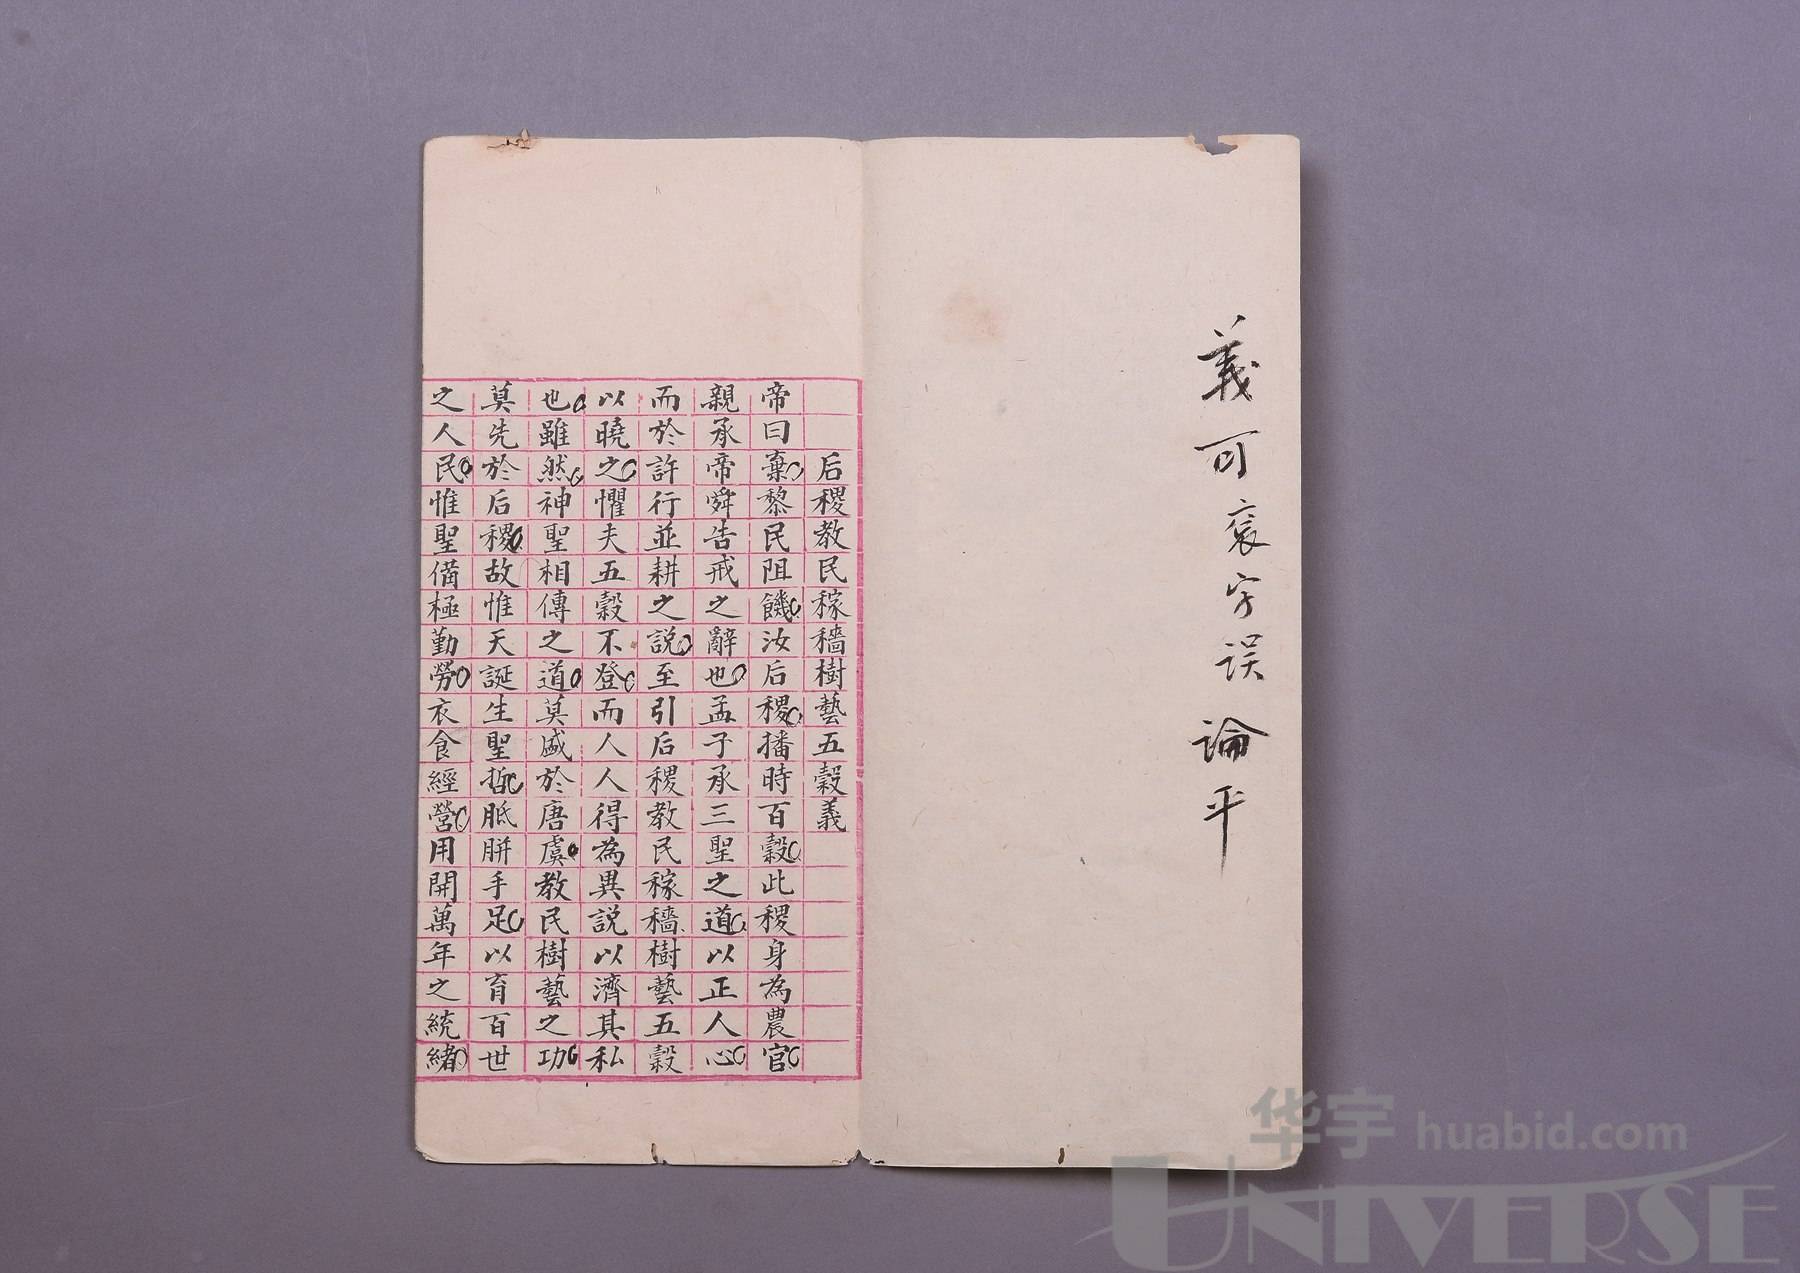 義可 褒字誤 論平
后稷教民稼穡樹藝五穀義
帝曰棄黎民阻饑汝后稷播時百穀此稷身為農官
親承帝舜告戒之辭也孟子承三聖之道以正人心
而於許行並耕之說至引后稷教民稼穡樹藝五穀
以曉之懼夫五穀不登而人人得為異說以濟其私
也雖然神聖相傳之道莫盛於唐虞教民樹藝之功
莫先於后稷故惟天誕生聖哲胝胼手足以育百世
之人民惟聖備極勤勞衣食經營用開萬年之統緒
华宇 huabid.com
UNIVERSE